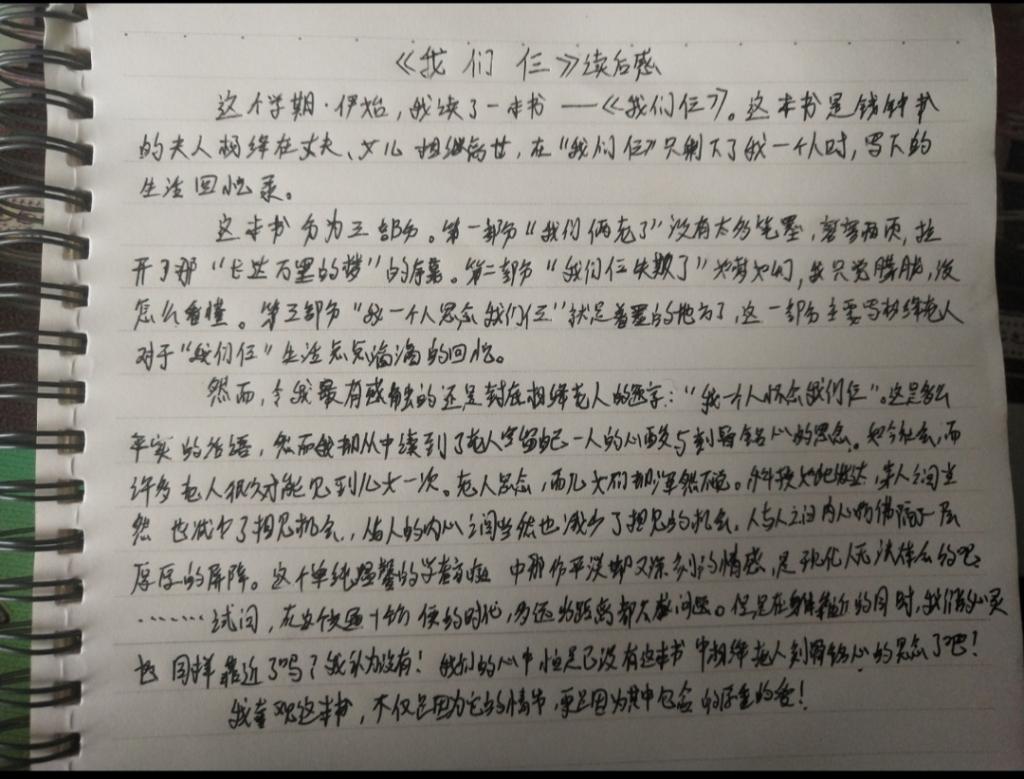 《我们仨》续后感
这个学期·伊始，我读了一本书——《我们仨》。这本书是钱钟书
的夫人杨绛在丈夫、女儿相继离世，在"我们仨"只剩下了我一个人时，写下的
生活回忆录。
这本书分为三部分。第一部分"我们俩老了"没有太多笔墨，寥寥两页，拉
开了那"长达万里的梦"的序幕。第二部分"我们仨失散了"如梦如幻，我只觉朦胧，没
怎么看懂。第三部分"我一个人思念我们仨"就是着墨的地方了，这一部分主要写杨绛老人
对于"我们仨"生活点点滴滴的回忆。
然而，令我最有感触的还是封底杨绛老人的题字："我一个人怀念我们仨"。这是多么
平实的话语，然而我却从中读到了老人空留自己一人的心酸与刻骨铭心的思念。如今社会，而
许多老人很久才能见到儿女一次。老人思念，而儿女们却浑然不觉。科技如此发达，亲人之间当
然也减少了相见机会，人与人的内心之间当然也减少了相见的机会，人与人之间内心仿佛隔了一层
厚厚的屏障。这个单纯温馨的学者家庭中那份平淡却又深刻的情感，是现代人无法体会的吧
……试问，在交通十分方便的时代，多远的距离都不成问题。但是在身体靠近的同时，我们的心灵
也同样靠近了吗？我认为没有！我们的心中怕是已没有这本书中杨绛老人刻骨铭心的思念了吧！
我喜欢这本书，不仅是因为它的情节，更是因为其中包含的厚重的爱！